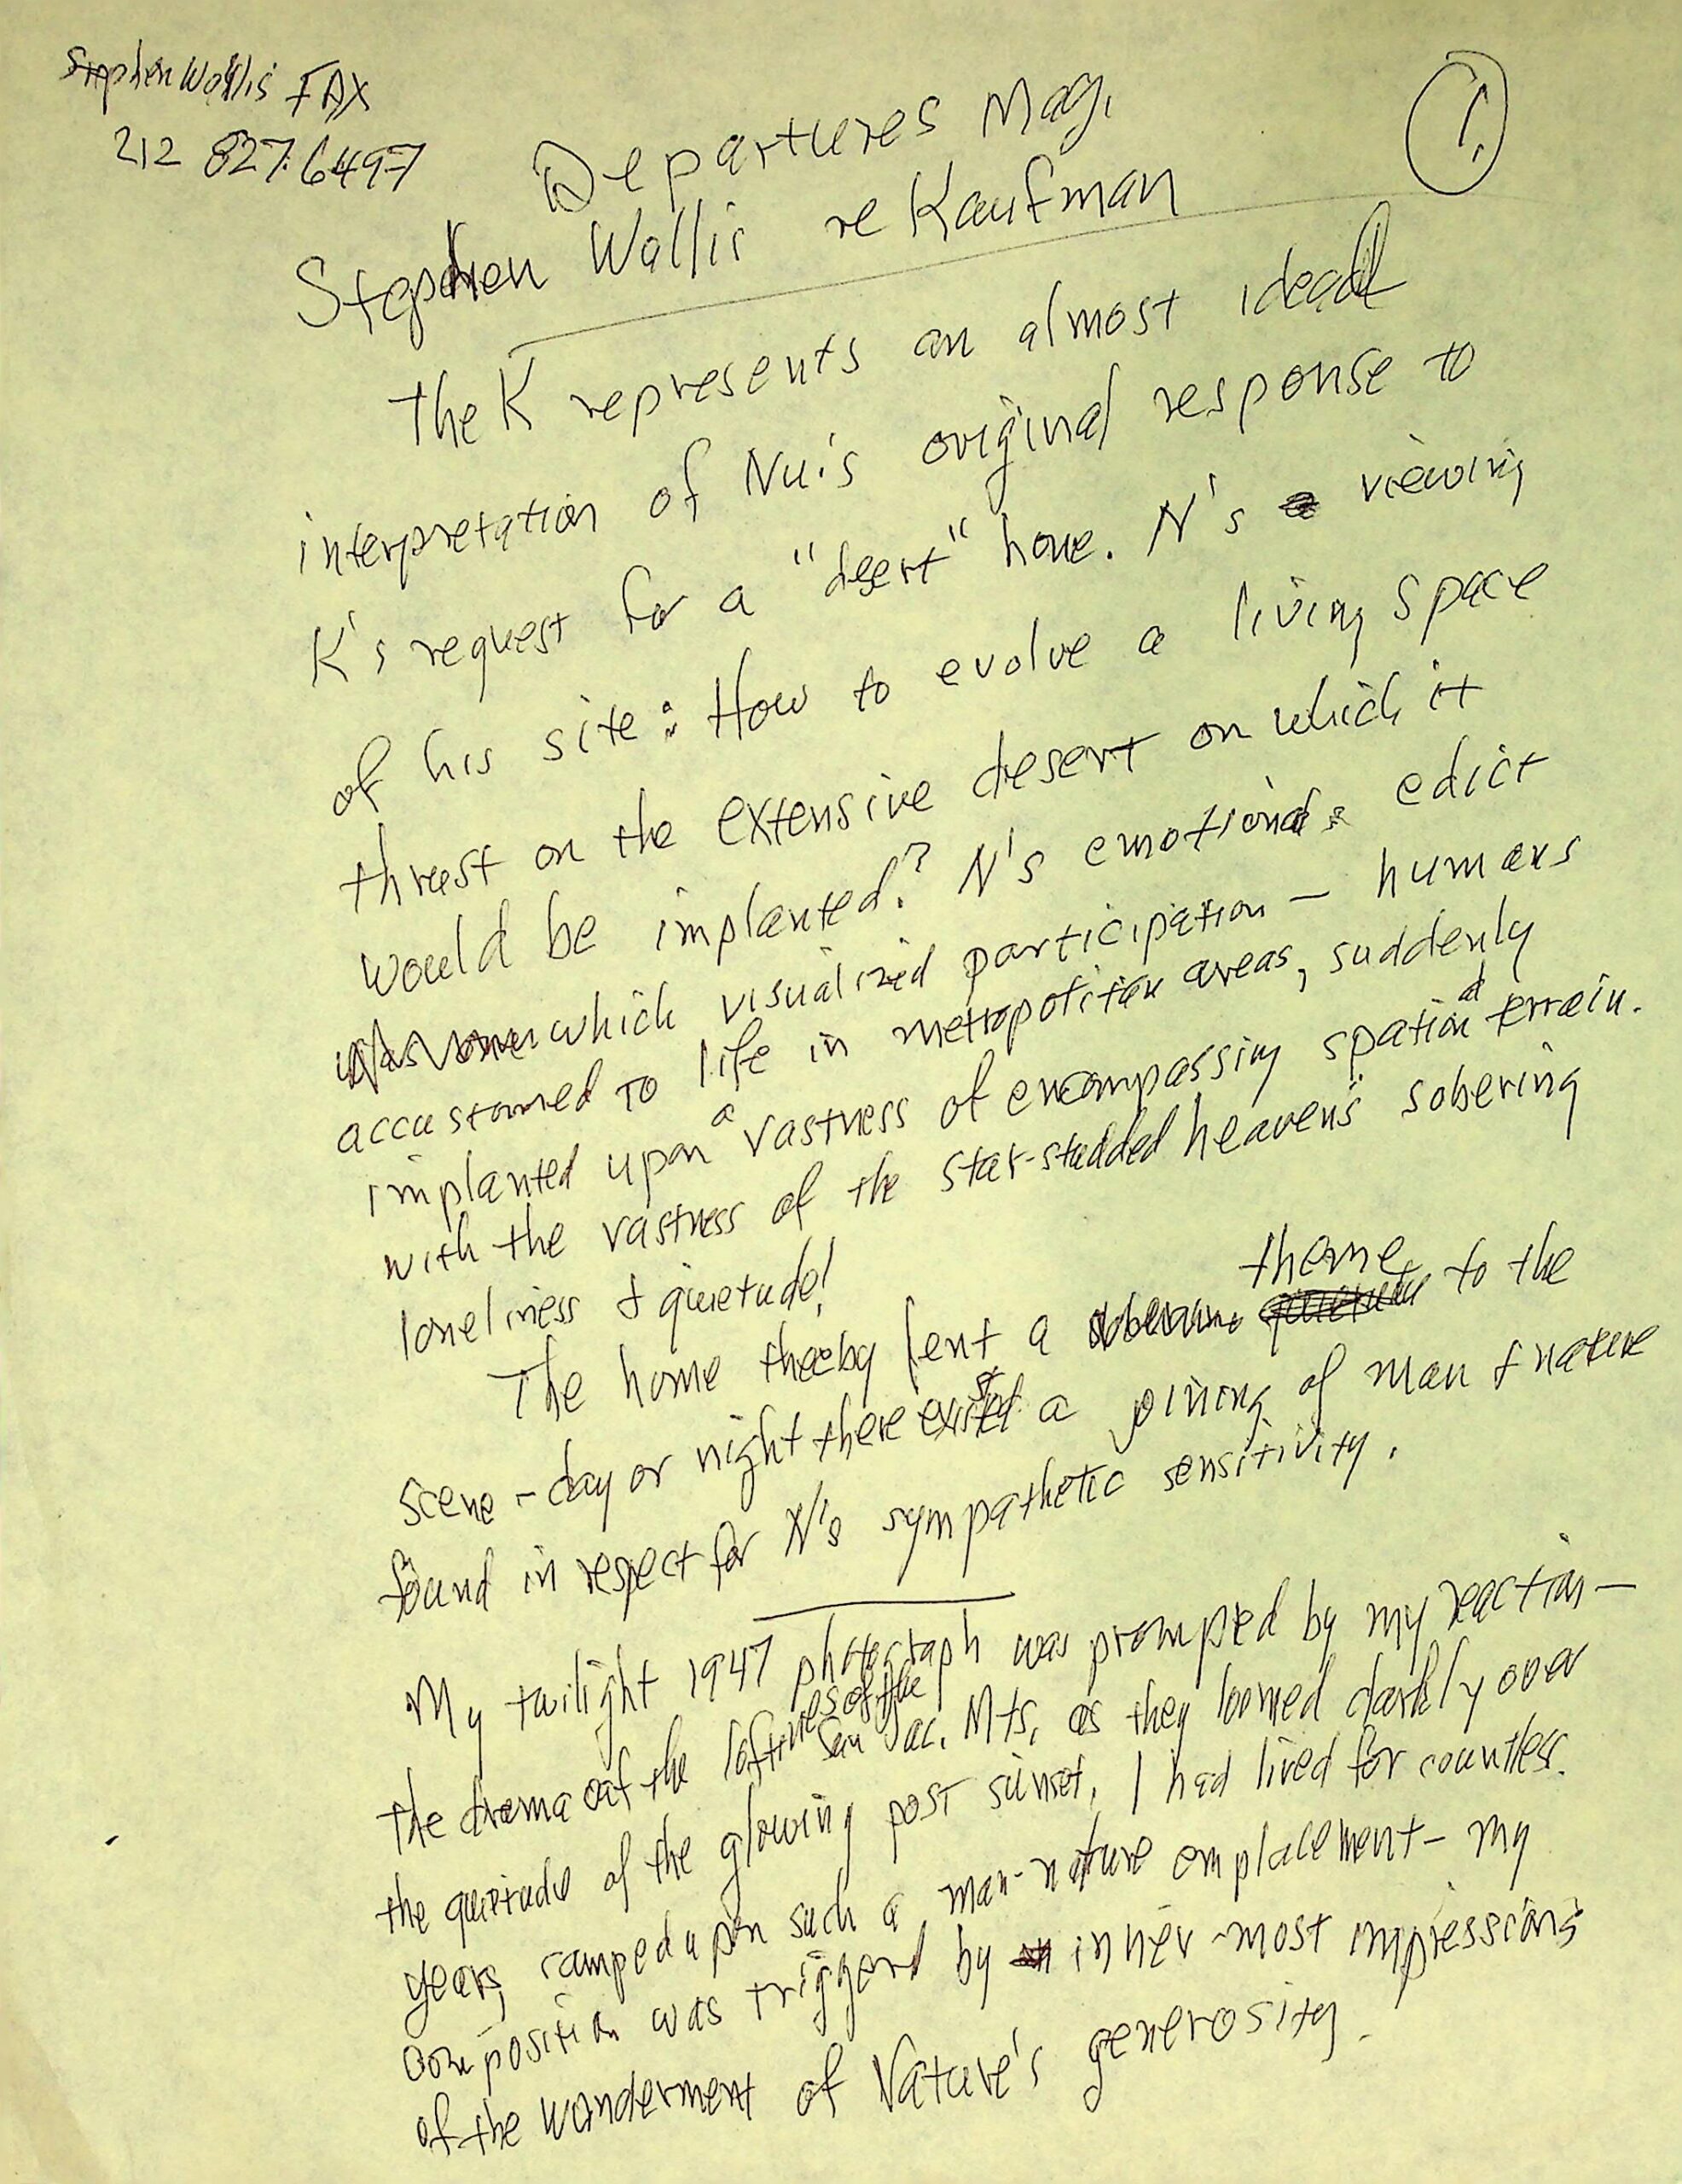 Stephen Wallis FAX
212 827.6497
1.
Departures Mag.
Stephen Wallis re Kaufman
The K represents an almost ideal
interpretation of Nu's original response to
K's request for a "desert" home. N's viewing
of his site: How to evolve a living space
thrust on the extensive desert on which it
would be implanted? N's emotional edict
which visualized participation – humans
accustomed to life in metropolitan areas, suddenly
implanted upon a vastness of encompassing spatial terrain.
with the vastness of the star-studded heavens sobering
loneliness & quietude!
The home thereby lent a theme to the
scene – day or night there existed a joining of man & nature
found in respect for N's sympathetic sensitivity.
My twilight 1947 photograph was prompted by my reaction –
the drama of the loftiness of the San Jac. Mts, as they loomed darkly over
the quietude of the glowing post sunset. I had lived for countless
years, camped upon such a man-nature emplacement – my
composition was triggered by inner-most impressions
of the wonderment of Nature's generosity.